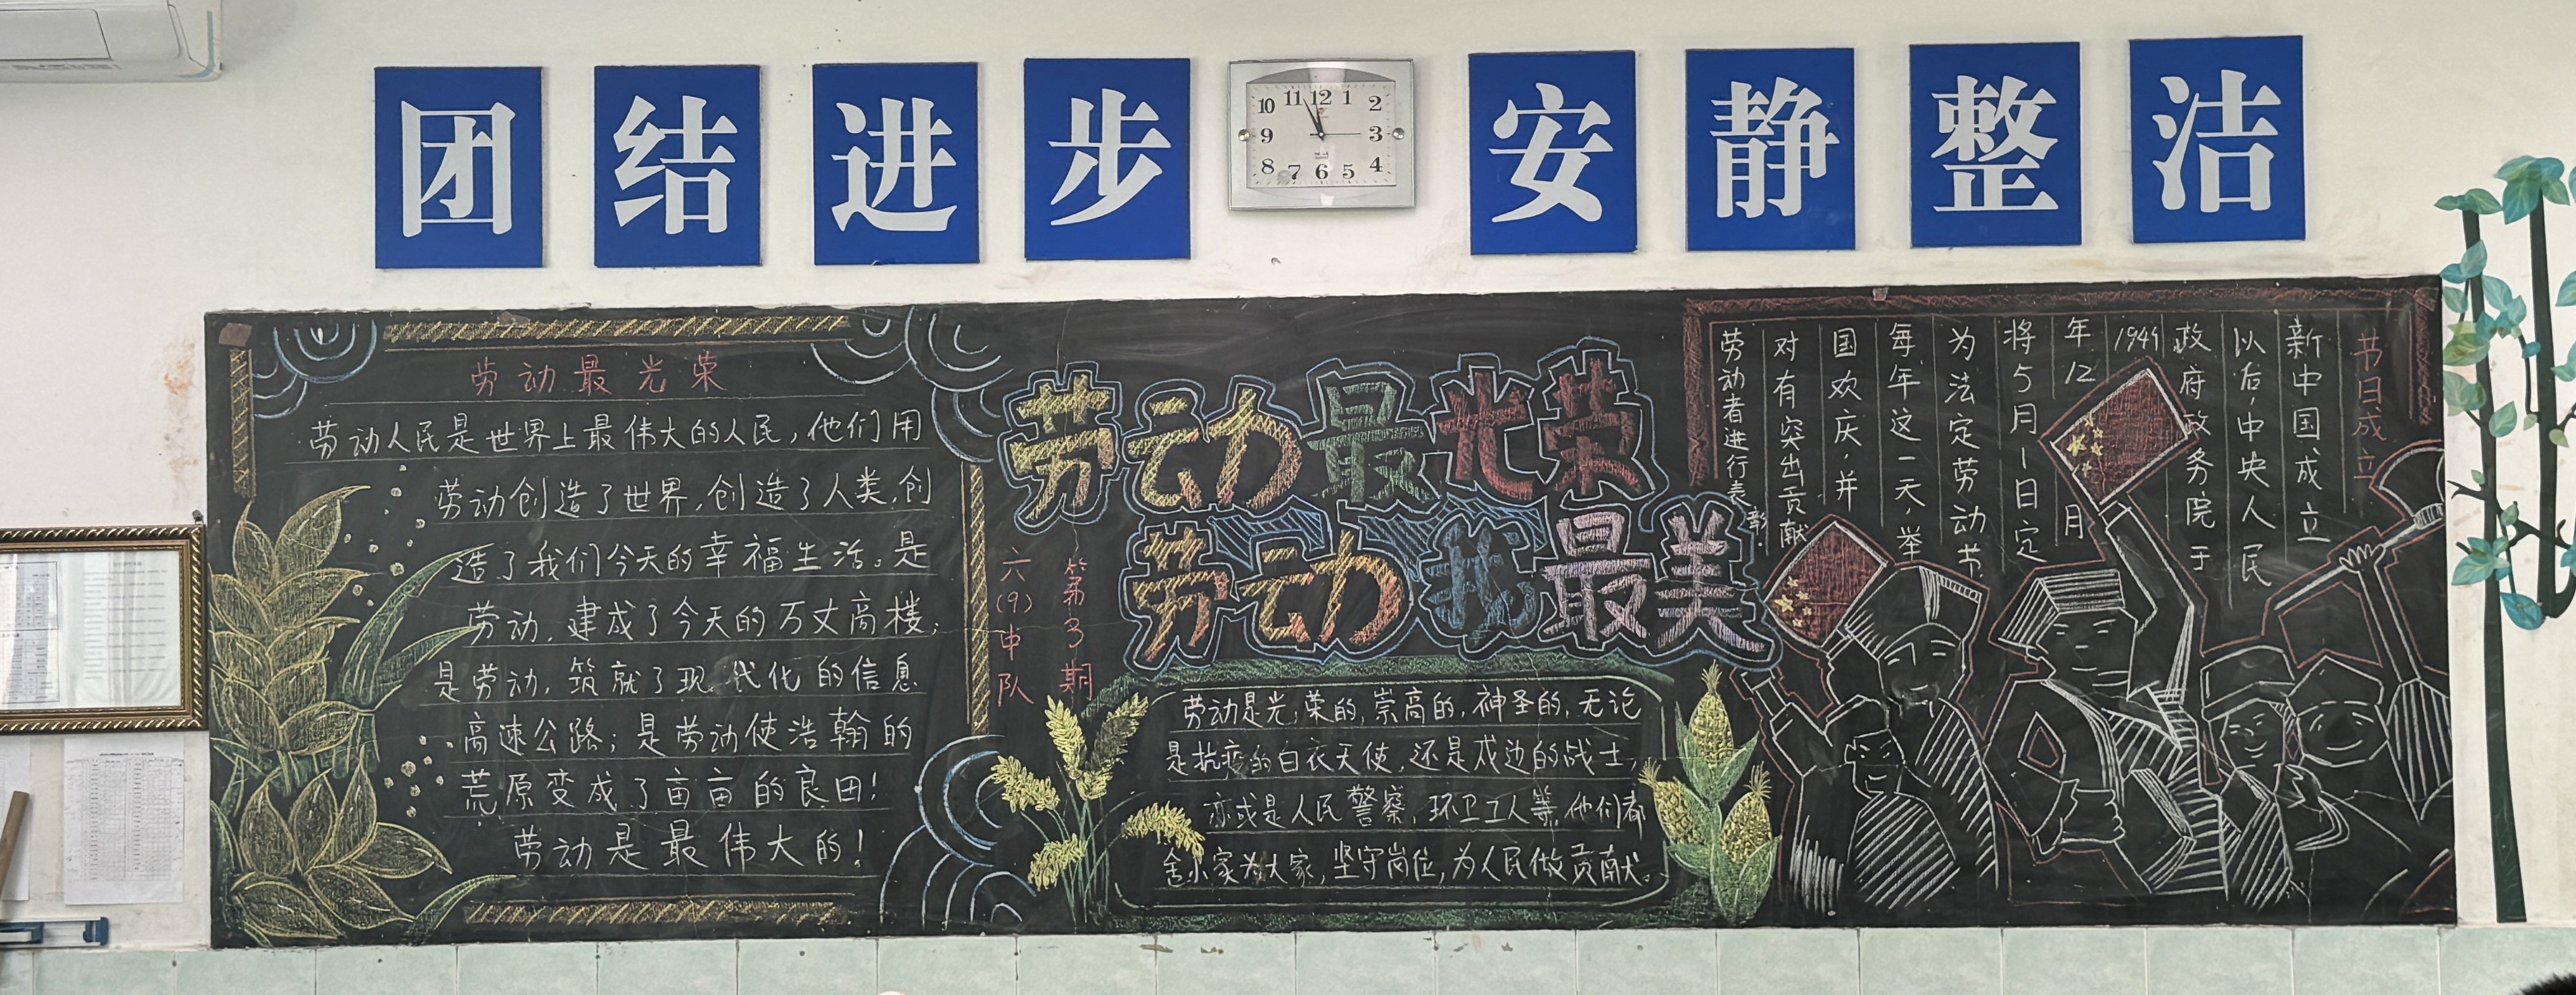 团结进步
安静整洁
10 11 12 1 2
9 3
8 7 6 5 4
劳动最光荣
劳动人民是世界上最伟大的人民，他们用
劳动创造了世界，创造了人类，创
造了我们今天的幸福生活。是
劳动，建成了今天的万丈高楼；
是劳动，筑就了现代化的信息
高速公路；是劳动使浩瀚的
荒原变成了亩亩的良田！
劳动是最伟大的！
劳动最光荣
劳动我最美
第3期
六(9)中队
劳动是光荣的，崇高的，神圣的，无论
是抗疫的白衣天使，还是戍边的战士，
亦或是人民警察，环卫工人等，他们都
舍小家为大家，坚守岗位，为人民做贡献。
节日成立
新中国成立
以后，中央人民
政府政务院于
1949
年12月
将5月1日定
为法定劳动节，
每年这一天，举
国欢庆，并
对有突出贡献
劳动者进行表彰.